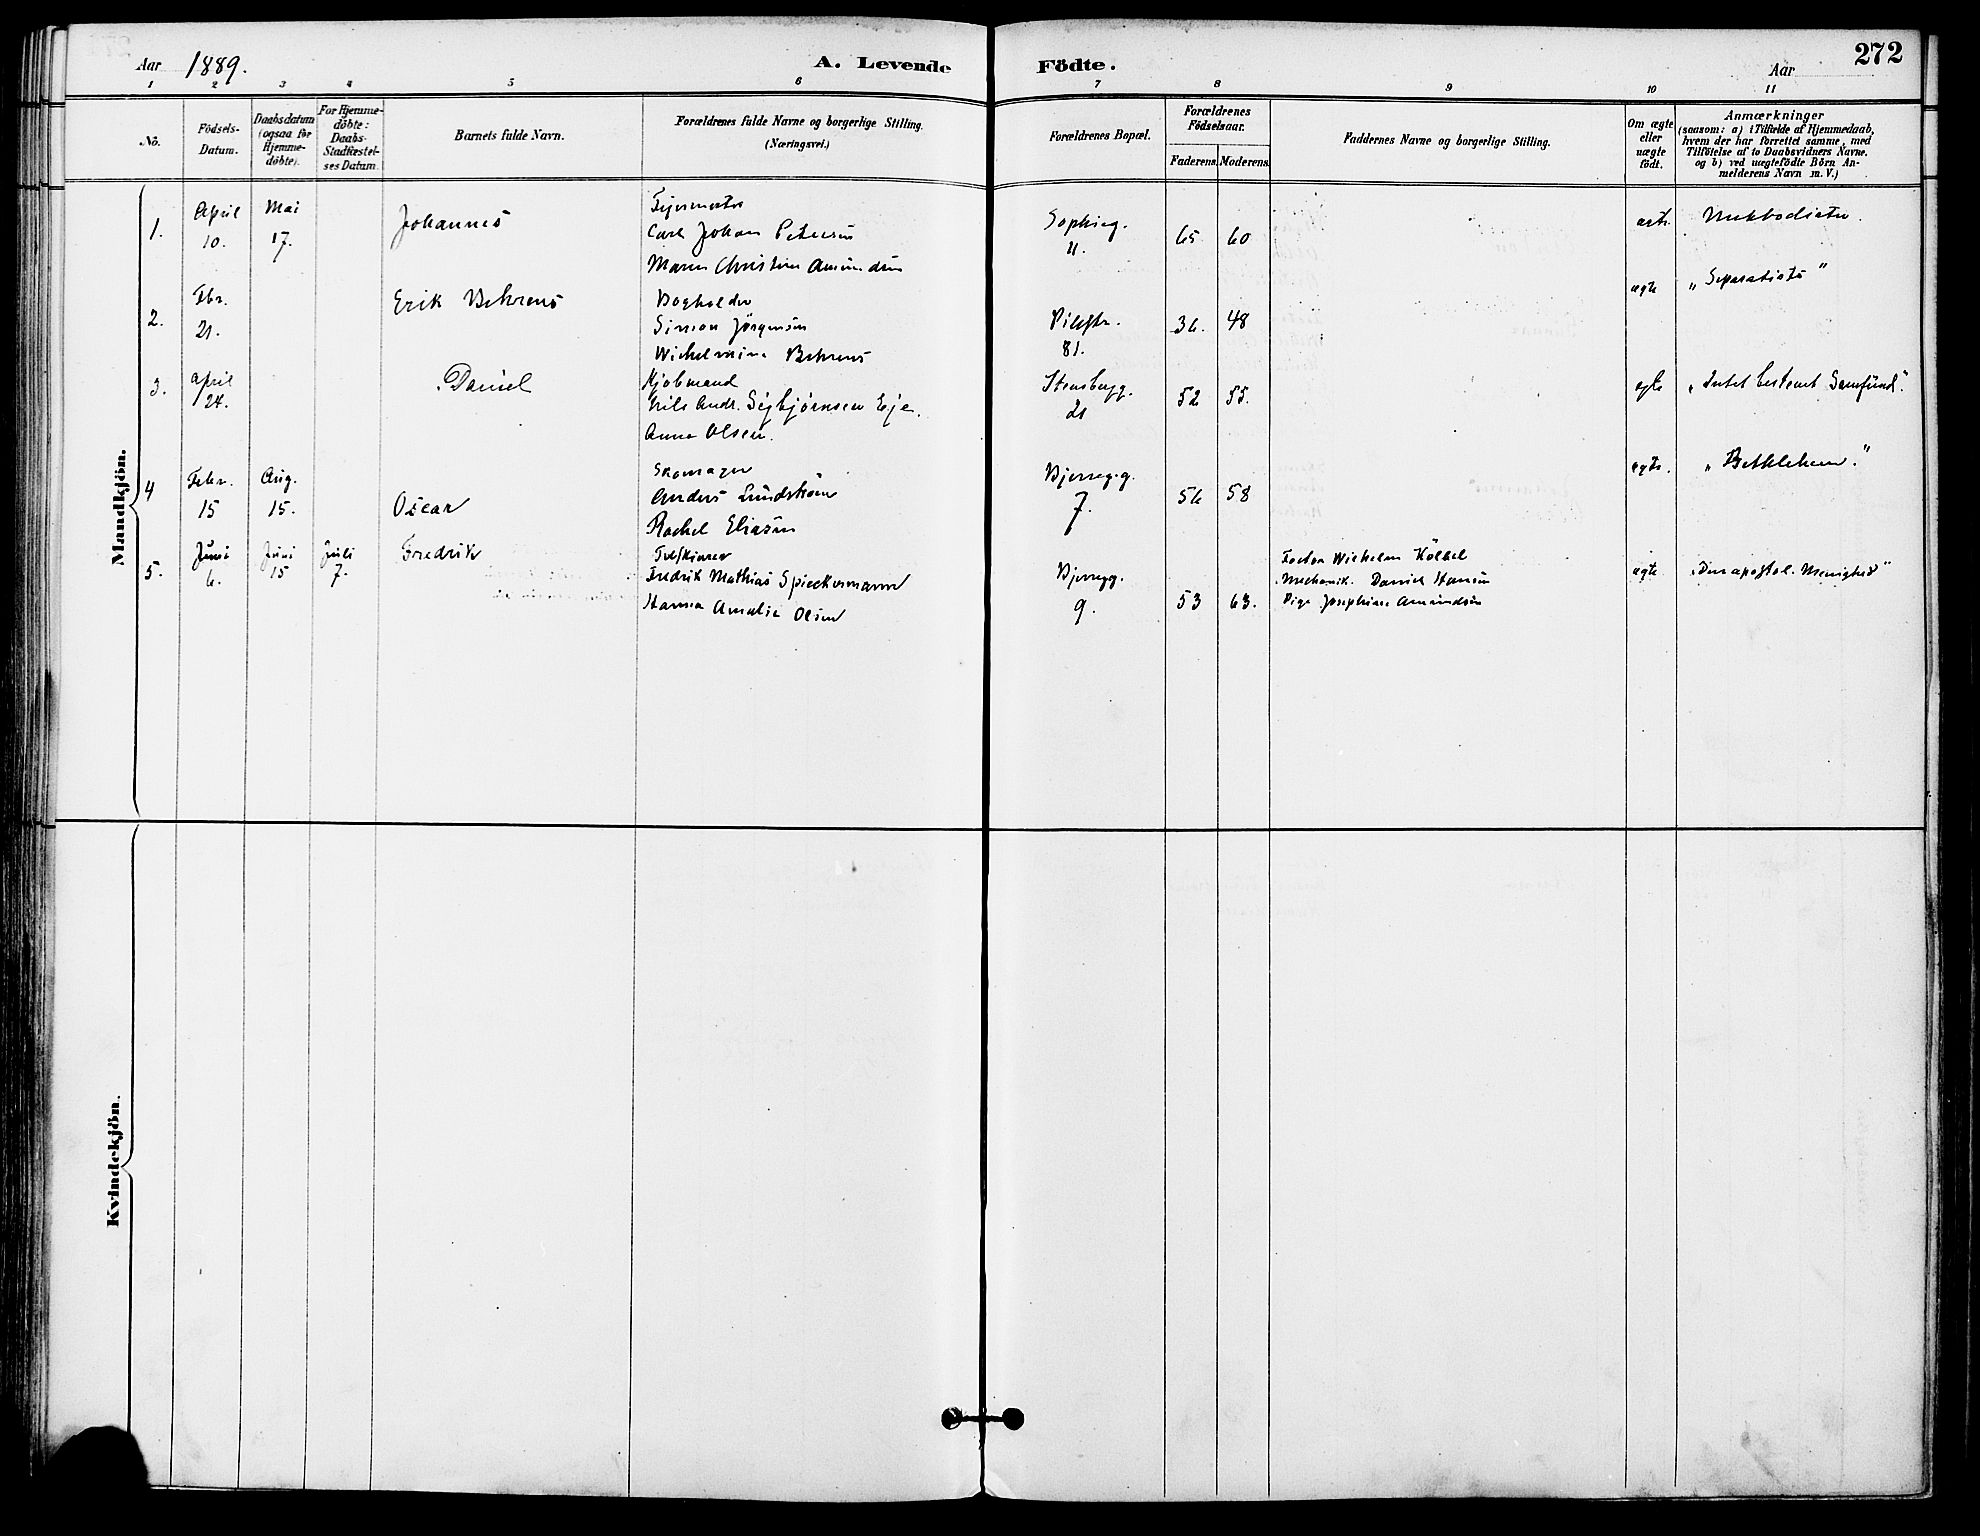 Aar 1889.
A. Levende Födte.
Aar
272
1 2 3 4 5 6 7 8 9 10 11
No.
Födsels-Datum.
Daabsdatum (ogsaa for Hjemme-döbte).
For Hjemme-döbte: Daabs-Stadfæstel-ses Datum.
Barnets fulde Navn.
Forældrenes fulde Navne og borgerlige Stilling.
(Næringsvei.)
Forældrenes Bopæl.
Forældrenes Födselsaar.
Faderens. Moderens.
Faddernes Navne og borgerlige Stilling.
Om ægte eller uægte födt.
Anmærkninger
(saasom: a) i Tilfælde af Hjemmedaab,
hvem der har forrettet samme, med
Tilföielse af to Daabsvidners Navne.
og b) ved uægtefödte Börn An-
melderens Navn m. V.)
Mandkjön.
1. April 10. Mai 17. Johannes
Carl Johan Petersen
Maren Christine Amundsen
Sophieg. 11. 65 60 ægte
2. Fbr. 21. Erik Behrens
Bogholder
Simon Jörgensen
Wilhelmine Behrens
Pilestr. 81. 36. 48 ægte „Separatists"
3. April 24. Daniel
Kjøbmand
Nils Andr. Sigbjørnsen Eje.
Anna Olsen.
Stensbergg. 21 52 55. ægte „Intet bestemt Samfund".
4 Febr. 15 Aug. 15. Oscar
Skomager
Anders Lundström
Rachel Eliasen
Bjerregg. 7. 56 58 ægte. „Bethlehem."
5. Juni 6. Juni 15 Juli 7. Fredrik
Fredrik Mathias Spieckermann
Hanna Amalia Olsen
Bjerregg. 9. 53 63.
Factor Wilhelm Kölbel
Mechanik. Daniel Hansen
Pige Josephine Amundsen
ægte „Den apostol. Menighed"
Kvindekjön.